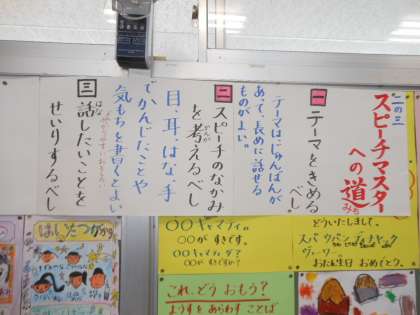 一の三
スピーチマスター
への道
みち
一
テーマをきめる
べし
テーマはじゅんばんが
あって、長めに話せる
ものがよい。
二
スピーチのなかみ
を考えるべし
かんが
目、耳、はな、手
でかんじたことや
気もちを書くとよい
三
話したいことを
はな
せいりするべし
どういたしまして。
おたん生日 おめでとう。
〇〇がすきです。
〇〇がすきですか?
これ、どう おもう?
ようすをあらわすことば